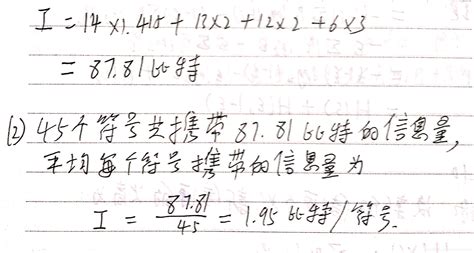 I = 14×1.415 + 13×2 + 12×2 + 6×3
= 87.81比特
(2) 45个符号共携带87.81比特的信息量,
平均每个符号携带的信息量为
I = 87.81/45 = 1.95比特/符号.